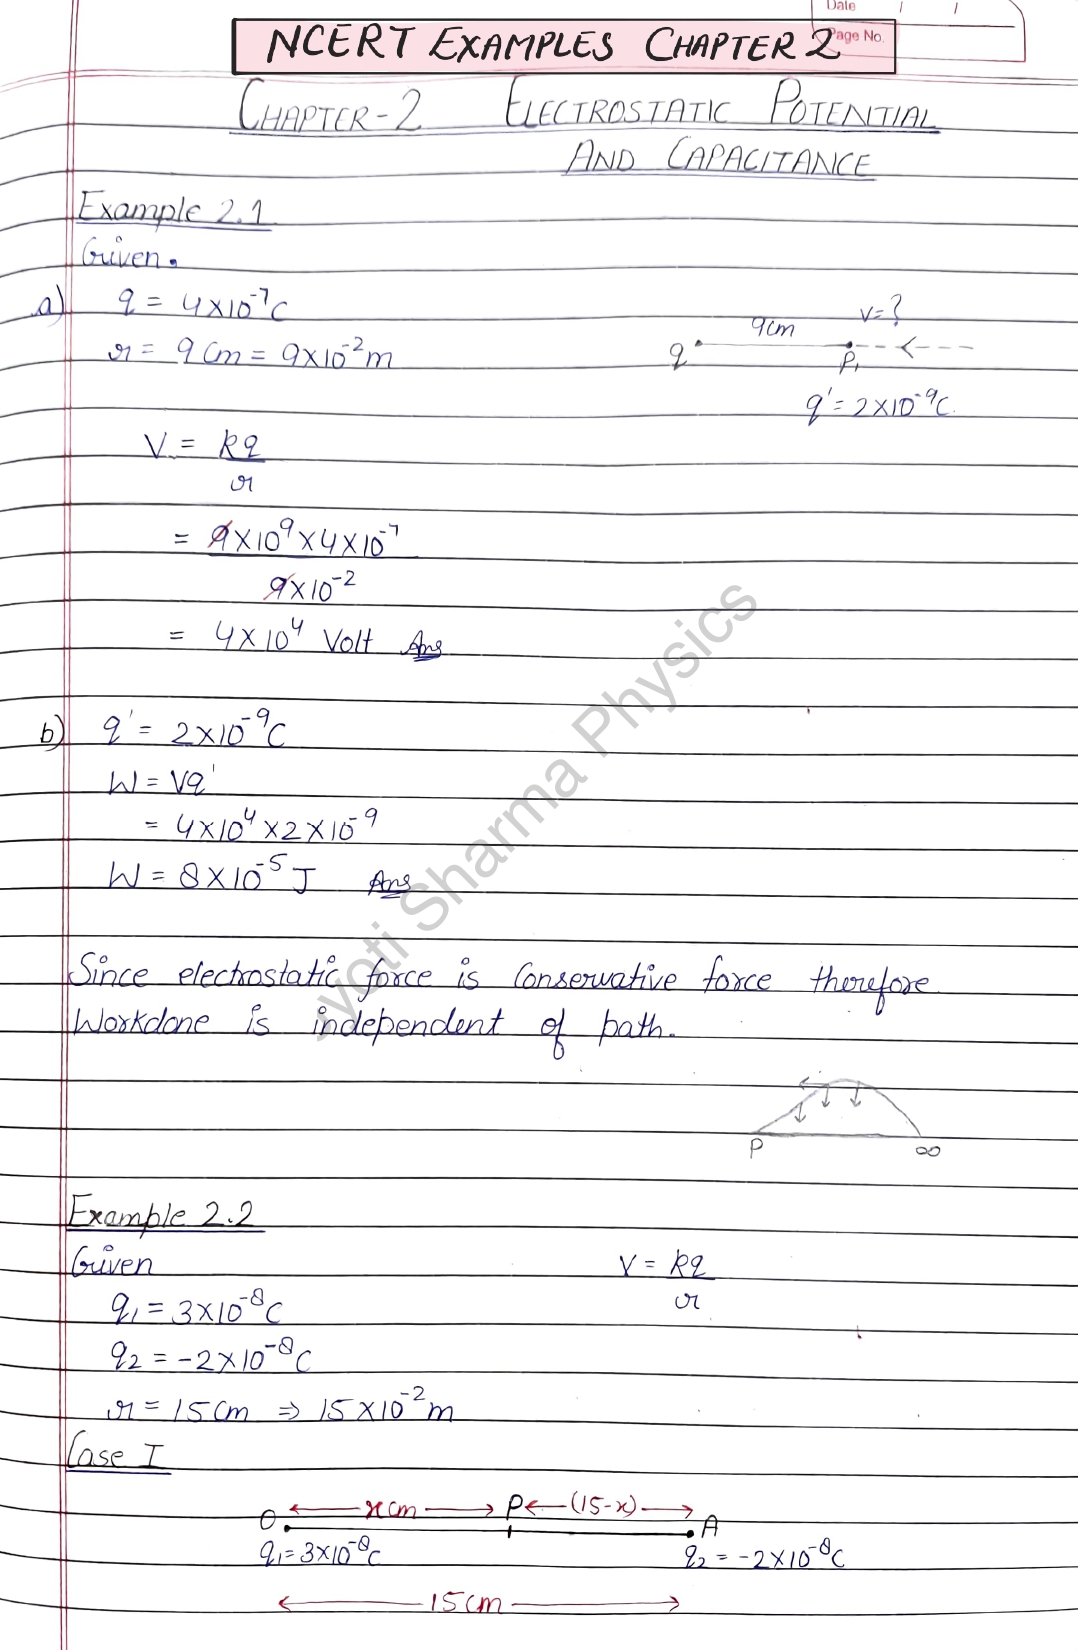 Date / /
Page No.
NCERT EXAMPLES CHAPTER 2
CHAPTER-2 ELECTROSTATIC POTENTIAL
AND CAPACITANCE
Example 2.1
Given.
a) q = 4×10⁻⁷C
r = 9cm = 9×10⁻²m
9cm V=?
q P₁
q' = 2×10⁻⁹C.
V = kq
r
= 9×10⁹×4×10⁻⁷
9×10⁻²
= 4×10⁴ Volt Ans
b) q' = 2×10⁻⁹C
W = Vq'
= 4×10⁴×2×10⁻⁹
W = 8×10⁻⁵J Ans
Since electrostatic force is Conservative force therefore
Workdone is independent of path.
P ∞
Example 2.2
Given V = kq
r
q₁ = 3×10⁻⁸C
q₂ = -2×10⁻⁸C
r = 15cm ⇒ 15×10⁻²m
Case I
O x cm P (15-x) A
q₁=3×10⁻⁸C q₂ = -2×10⁻⁸C
15cm
Jyoti Sharma Physics